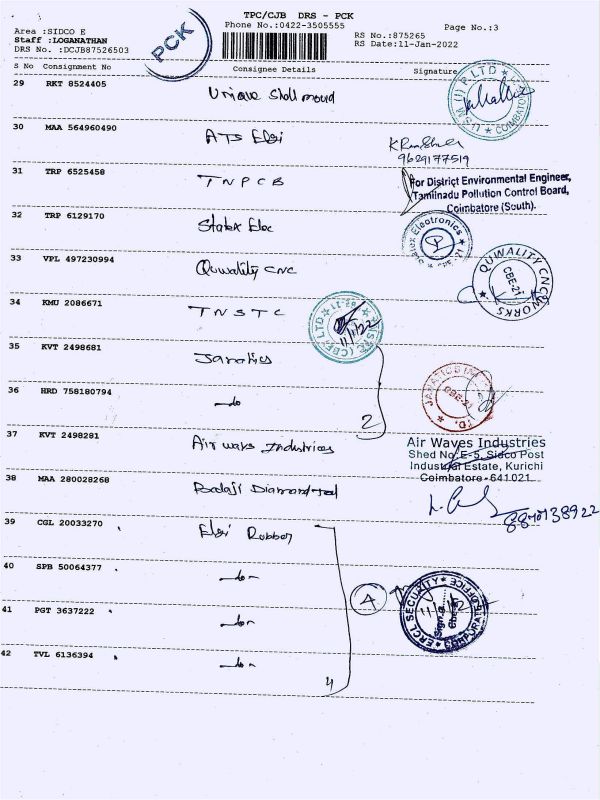 TPC/CJB DRS - PCK
Phone No.:0422-3505555
Page No.:3
Area :SIDCO E
Staff :LOGANATHAN
DRS No. :DCJB87526503
PCK
RS No.:875265
RS Date:11-Jan-2022
S No Consignment No Consignee Details Signature
29 RKT 8524405 Unique Shell mould
COIMBATO
30 MAA 564960490 ATS Elgi
9629177519
31 TRP 6525458 TNPCB
For District Environmental Engineer,
Tamilnadu Pollution Control Board,
Coimbatore (South).
32 TRP 6129170 Statex Elec
Statex Electronics
33 VPL 497230994 Quwality CNC
QUWALITY CNC WORKS
CBE-21
34 KMU 2086671 TNSTC
11/1/22
35 KVT 2498681 Janatics
JANATICS
CBE-21
36 HRD 758180794 -do
2
37 KVT 2498281 Airwaves Industries
Air Waves Industries
Shed No. E-5, Sidco Post
Industrial Estate, Kurichi
Coimbatore - 641 021.
38 MAA 280028268 Balaji Diamond
8870138922
39 CGL 20033270 Elgi Rubber
40 SPB 50064377 -do-
4
ERCL SECURITY
CORPORATE OFFICE
41 PGT 3637222 -do-
42 TVL 6136394 -do-
4